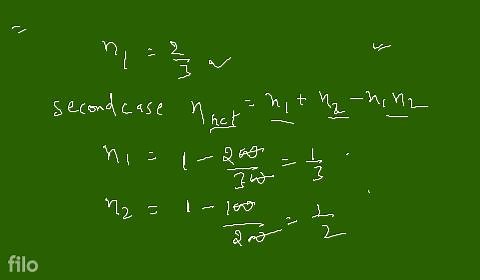 =
η₁ = 2/3
second case η_net = η₁ + η₂ - η₁η₂
η₁ = 1 - 200/300 = 1/3
η₂ = 1 - 100/200 = 1/2
filo